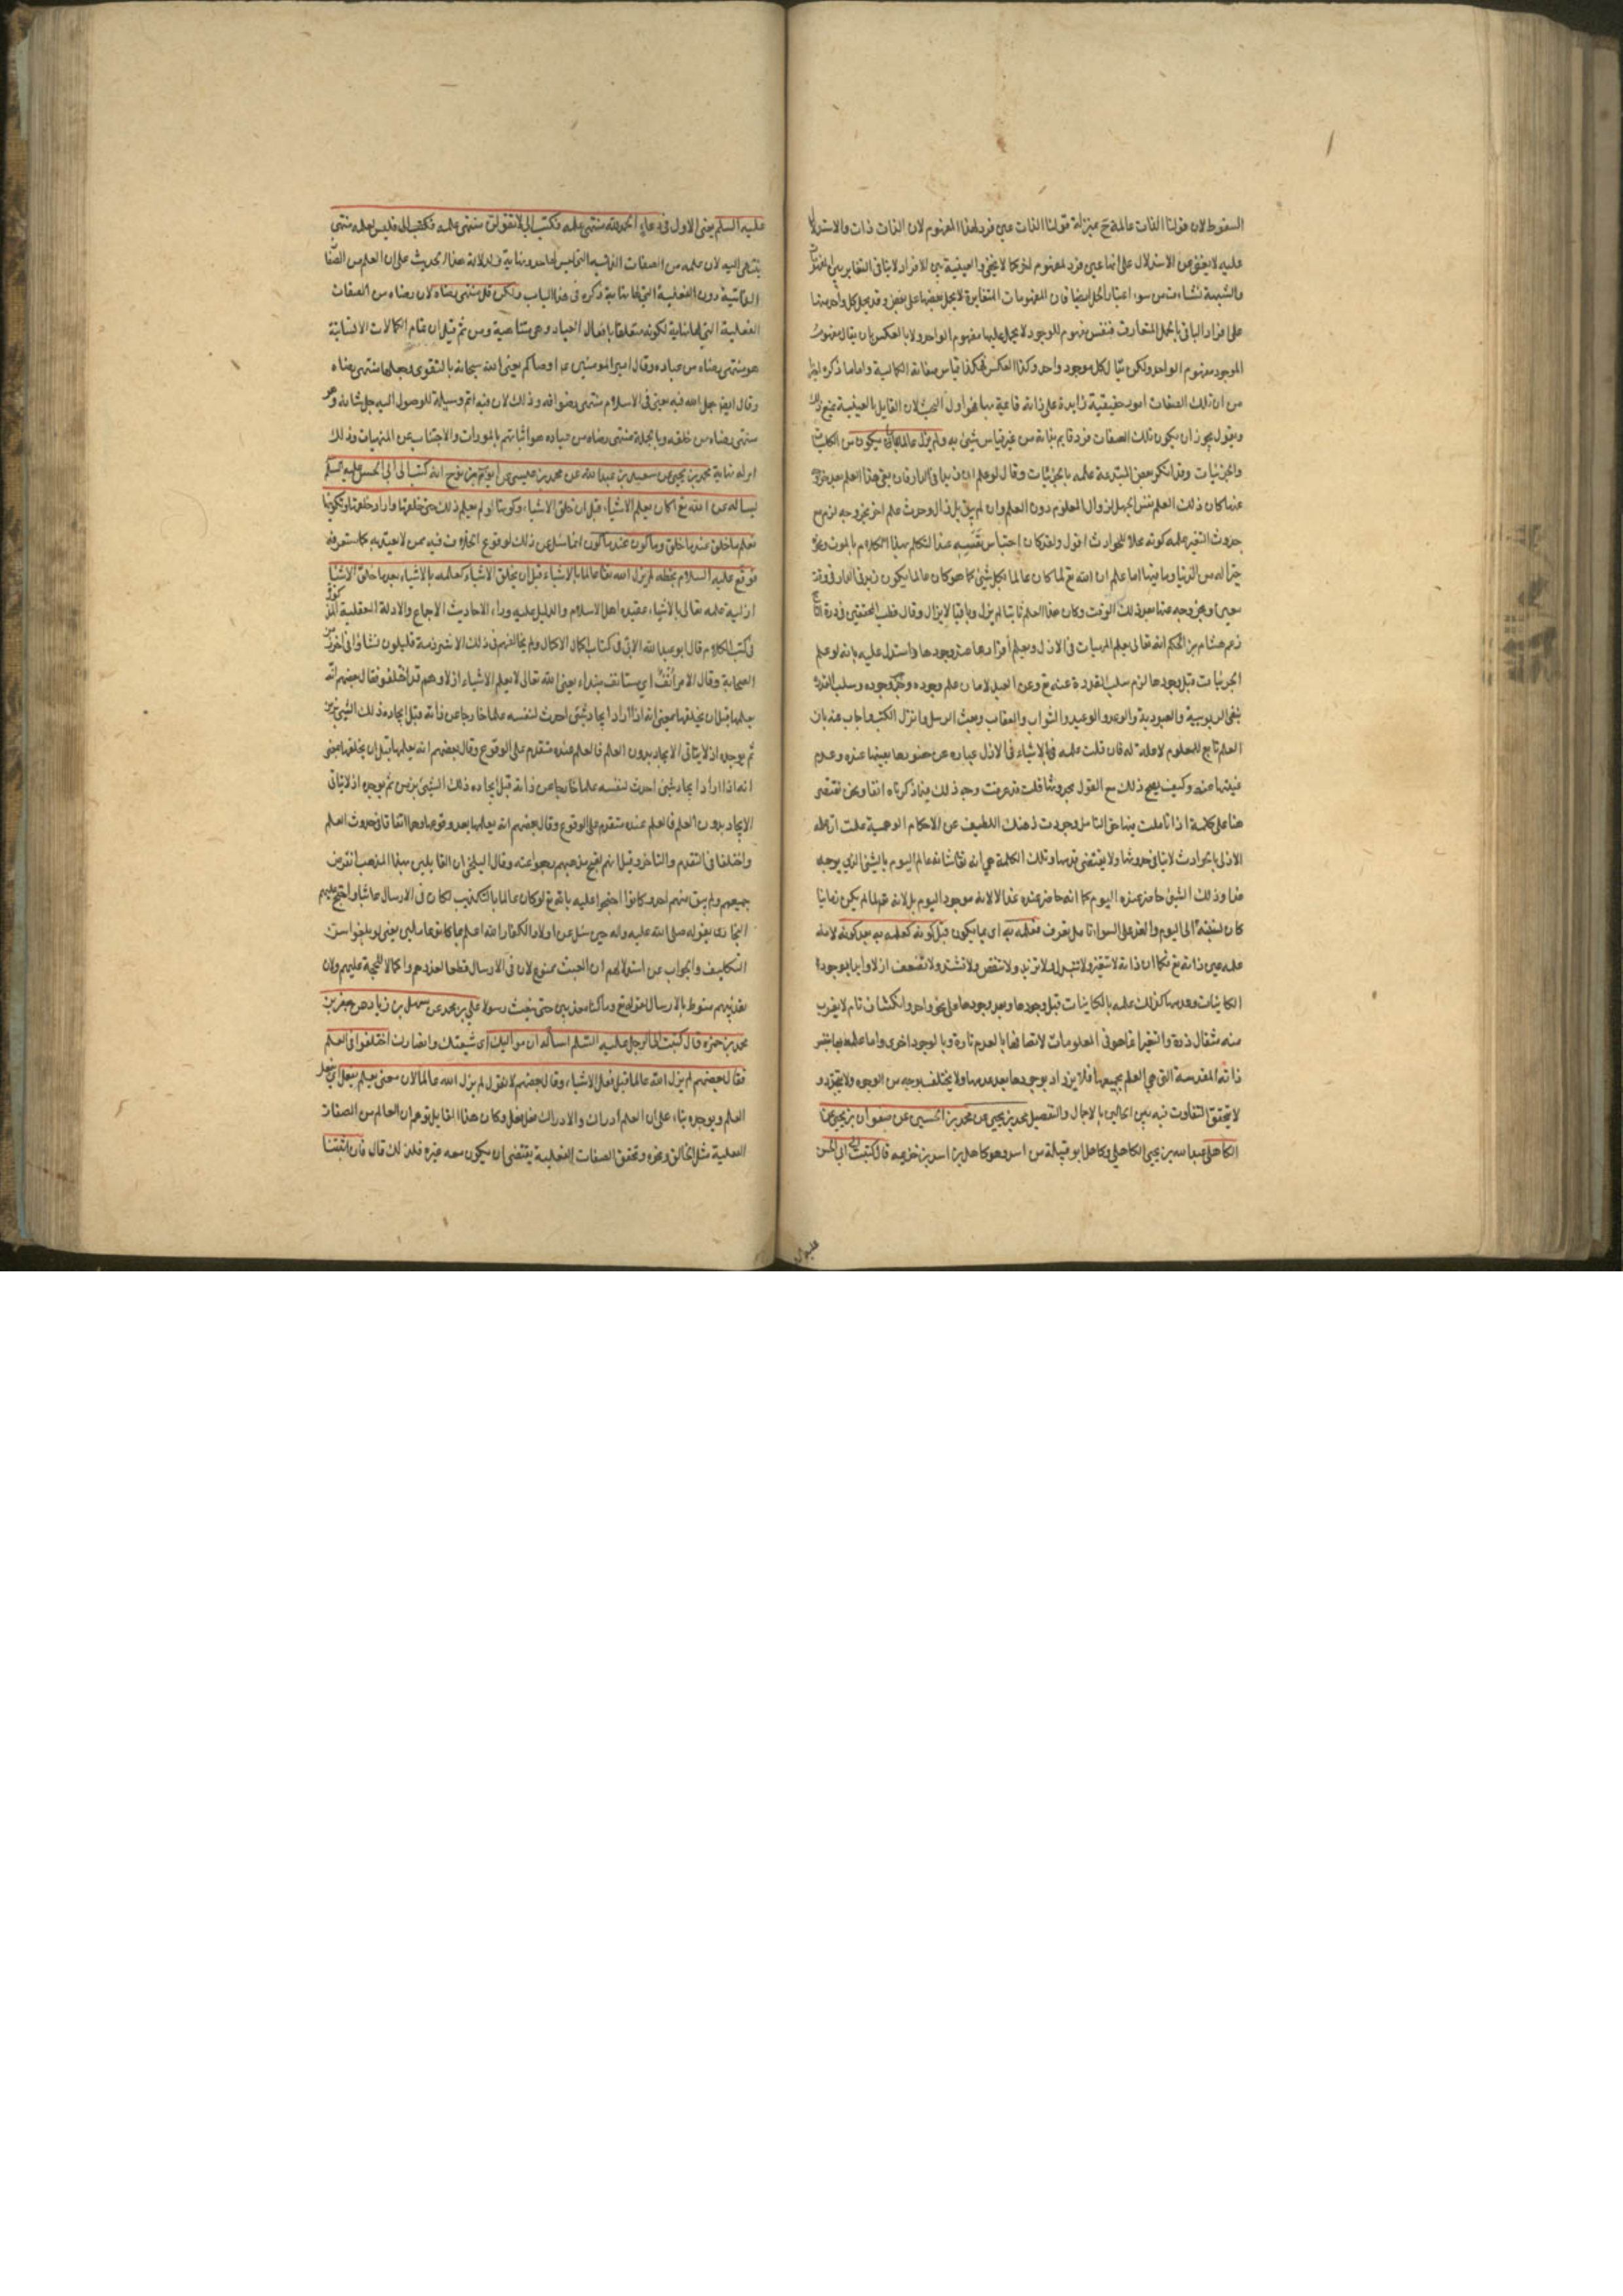 السقوط لان قولنا الذات عالمة بمنزلة قولنا الذات عين فرد لهذا المفهوم لان الذات ذات والاستدلا
عليه لا يغني عن الاستدلال على انها عين فرد لمفهوم اخر كما لا يخفى والعينية بين الافراد لا ينافي التغاير بين المفهومات
والشبهة نشاءت من سوء اعتبار الحمل ايضا فان المفهومات المتغايرة لا يحمل بعضها على بعض وقد يحمل كل واحد منها
على افراد الباقي بالحمل المتعارف فنفس مفهوم الموجود لا يحمل عليها مفهوم الواحد ولا بالعكس بان يقال مفهوم
الموجود مفهوم الواحد ولكن يقال كل موجود واحد وكذا العكس فهكذا قياس صفاته الكمالية واما ما ذكره ايضا
من ان تلك الصفات امور حقيقية زايدة على ذاته قائمة بها فهو اول البحث لان القايل بالعينية يمنع ذلك
ويقول يجوز ان يكون تلك الصفات فرد قايم بذاته من غير قياس شيئ به ولم يزل عالما بما يكون من الكليات
والجزئيات وقد انكر بعض المبتدعة علمه بالجزئيات وقال لو علم ان زيدا في الدار فان بقي هذا العلم بعد خروجه
عنها كان ذلك العلم نفس الجهل لزوال المعلوم دون العلم وان لم يبق بل زال وحدث علم اخر بخروجه لزم مع
حدوث التغير علمه كونه محلا للحوادث اقول ولقد كان احتباس نفسه عند التكلم بهذا الكلام بالموت ونحوه
خيرا له من الدنيا وما فيها اما علم ان الله تع لما كان عالما بكل شيئ كما هو كان عالما بكون زيد في الدار في وقت
معين وبخروجه عنها بعد ذلك الوقت وكان هذا العلم ثابتا لم يزل وباقيا لا يزال وقال قطب المحققين في درة التاج
زعم هشام بن الحكم انه تعالى يعلم المهيات في الازل ويعلم افرادها عند وجودها واستدل عليه بانه لو علم
الجزئيات قبل وجودها لزم سلب القدرة عنه تع وعن العبد لان ما علم وجوده وجب وجوده وسلب القدرة
ينفي الربوبية والعبودية والوعد والوعيد والثواب والعقاب وبعث الرسل وانزل الكتب واجاب عنه بان
العلم تابع للمعلوم لا علة له فان قلت علمه بالاشياء في الازل عبارة عن حضورها بعينها عنده وعدم
غيبتها عنه وكيف يصح ذلك مع القول بحدوثها قلت قد عرفت وجه ذلك فيما ذكرناه انفا ونحن نقتصر
هنا على كلمة اذا تاملت فيها حق التامل وجودت ذهنك اللطيف عن الاحكام الوهمية علمت ان علمه
الازلي بالحوادث لا ينافي حدوثها ولا يقتضي قدمها وتلك الكلمة هي انه تعالى شانه عالم اليوم بالشيئ الذي يوجد
غدا وذلك الشيئ حاضر عنده اليوم كما انه حاضر عنده غدا لا لانه موجود اليوم بل لانه تع لما لم يكن زمانيا
كان نسبته الى اليوم والغد على السواء تامل تعرف فعلمه به اي بما يكون قبل كونه كعلمه به بعد كونه لانه
علمه عين ذاته تع فكما ان ذاته لا تتغير ولا تتبدل ولا تزيد ولا تنقص ولا تشتد ولا تضعف ازلا وابدا بوجود
الكاينات وعدمها كذلك علمه بالكاينات قبل وجودها وبعد وجودها على نحو واحد وانكشاف تام لا يعزب
منه مثقال ذرة والتغير انما هو في المعلومات لاتصافها بالعدم تارة وبالوجود اخرى واما علمه بها بنفس
ذاته المقدسة التي هي العلم بجميعها فلا يزداد بوجودها بعد عدمها ولا يختلف بوجه من الوجوه ولا يتجدد و
لا يتحقق التفاوت فيه بين الحالين بالاجمال والتفصيل محمد بن يحيى عن محمد بن الحسين عن صفوان بن يحيى عن
الكاهلي عبد الله بن يحيى الكاهلي وكاهل ابو قبيلة من اسد وهو كاهل بن اسد بن خزيمة قال كتبت الى ابي الحسن
عليه السلم
عليه السلم يعني الاول في دعاء الحمد لله منتهى علمه فكتب الي لا تقولن منتهى علمه فليس لعلمه منتهى
ينتهي اليه لان علمه من الصفات الذاتية التي ليس لها حد ونهاية ودلالة هذا الحديث على ان العلم من الصفات
الذاتية دون الفعلية التي لها نهاية ذكره في هذا الباب ولكن قل منتهى رضاه لان رضاه من الصفات
الفعلية التي لها نهاية لكونه متعلقا بافعال العباد وهي متناهية ومن ثم قيل ان مقام الكمالات الانسانية
هو منتهى رضاه من عباده وقال امير المومنين ع اوصاكم يعني الله سبحانه بالتقوى وجعلها منتهى رضاه
وقال ايضا جعل الله فيه يعني في الاسلام منتهى رضوانه وذلك لان فيه اتم وسيلة للوصول اليه جل شانه وهو
منتهى رضاه من خلقه وبالجملة منتهى رضاه من عباده هو اتيانهم بالمورات والاجتناب عن المنهيات وذلك
امر له نهاية محمد بن يحيى عن سعد بن عبد الله عن محمد بن عيسى عن ايوب بن نوح انه كتب الى ابي الحسن عليه السلم
يساله عن الله تع اكان يعلم الاشياء قبل ان خلق الاشياء وكونها او لم يعلم ذلك حتى خلقها واراد خلقها وتكوينها
فعلم ما خلق عند ما خلق وما كون عند ما كون انما سئل عن ذلك لوقوع الخلاف فيه ممن لا يعتد به كما ستعرفه
فوقع عليه السلام بخطه لم يزل الله تعا عالما بالاشياء قبل ان يخلق الاشياء كعلمه بالاشياء بعد ما خلق الاشياء
ازلية علمه تعالى بالاشياء عقيدة اهل الاسلام والدليل عليه وراء الاحاديث الاجماع والادلة العقلية المذكورة
في كتب الكلام قال ابو عبد الله الابي في كتاب اكمال الاكمال ولم يخالفهم في ذلك الا شرذمة قليلون نشاؤا في اخر زمن
الصحابة وقال الامر انف اي مستانف مبتداء يعني الله تعالى لا يعلم الاشياء ازلا وهم قد اختلفوا فقال بعضهم انه
يعلمها قبل ان يخلقها بمعنى انه اذا اراد ايجاد شيئ احدث لنفسه علما خارجا عن ذاته قبل ايجاده ذلك الشيئ
ثم يوجده اذ لا يتاتى الايجاد بدون العلم فالعلم عنده متقدم على الوقوع وقال بعضهم انه يعلمها قبل ان يخلقها بمعنى
انه اذا اراد ايجاد شيئ احدث لنفسه علما خارجا عن ذاته قبل ايجاده ذلك الشيئ بزمن ثم يوجده اذ لا يتاتى
الايجاد بدون العلم فالعلم عنده متقدم على الوقوع وقال بعضهم انه يعلمها بعد وقوعها وهما اتفاقا في حدوث العلم
واختلفا في التقدم والتاخر وقيل انهم لقبح مذهبهم رجعوا عنه وقال البلخي ان القايلين بهذا المذهب انقرض
جميعهم ولم يبق منهم احد وكانوا احتجوا عليه بانه تع لو كان عالما بالتكذيب لكان في الارسال عابثا واحتج عليهم
البخاري بقوله صلى الله عليه واله حين سئل عن اولاد الكفار الله اعلم بما كانوا عاملين يعني لو بلغوا سن
التكليف والجواب عن استدلالهم ان العبث ممنوع لان في الارسال قطعا لعذرهم واكمالا للحجة عليهم ولان
تعذيبهم منوط بالارسال لقوله تع وما كنا معذبين حتى نبعث رسولا علي بن محمد عن سهل بن زياد عن جعفر بن
محمد بن حمزة قال كتبت الى الرجل عليه السلم اساله ان مواليك اي شيعتك وانصارك اختلفوا في العلم
فقال بعضهم لم يزل الله عالما قبل فعل الاشياء وقال بعضهم لا نقول لم يزل الله عالما لان معنى يعلم يفعل اي يفعل
العلم ويوجده بناء على ان العلم ادراك والادراك فعل وكان هذا القايل توهم ان العالم من الصفات
الفعلية مثل الخالق ونحوه وتحقق الصفات الفعلية يقتضي ان يكون معه غيره فلذلك قال فان اثبتنا